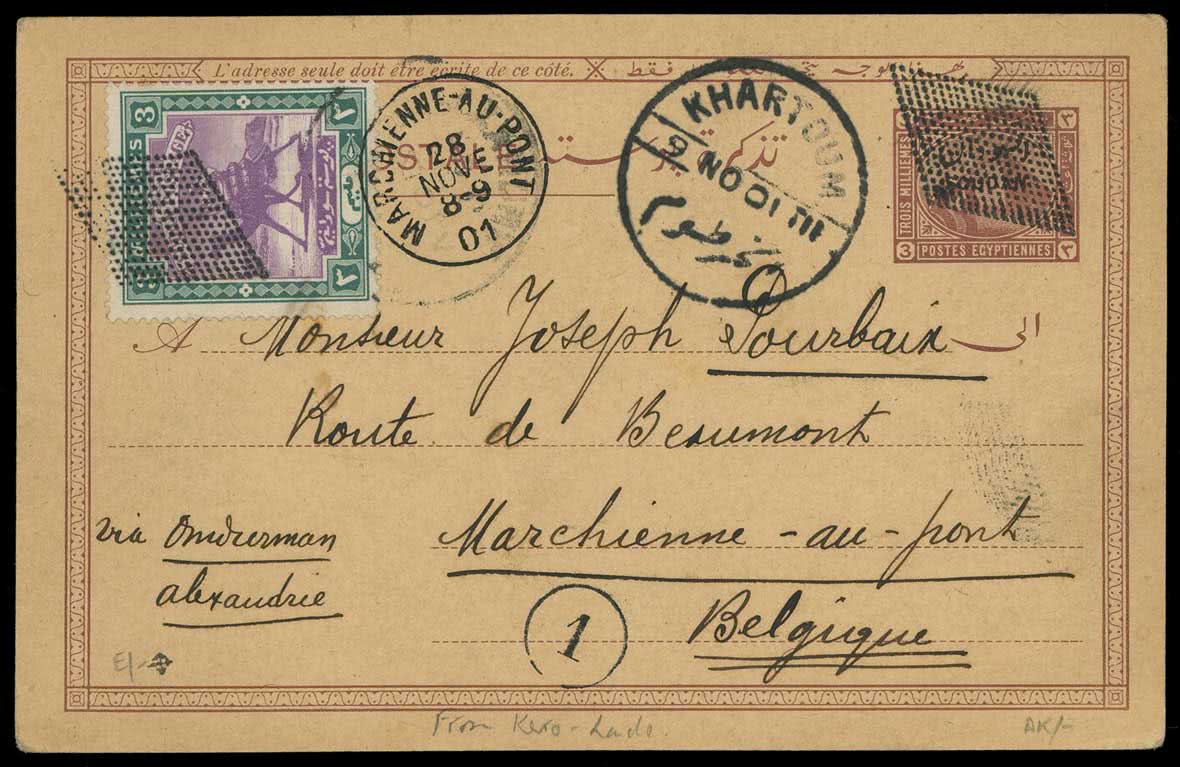 L'adresse seule doit être écrite de ce côté.
فقط
3 MILLIEMES
3
MARCHIENNE-AU-PONT
28
NOVE
8-9
01
تذكرة بوستة
KHARTOUM
9 NO 01
خرطوم
TROIS MILLIEMES
SOUDAN
3 POSTES EGYPTIENNES ٣
A Monsieur Joseph Sourbaix الى
Route de Beaumont
via Omdurman
alexandrie
Marchienne-au-pont
1
Belgique
From Kero-Lado.
AK/-